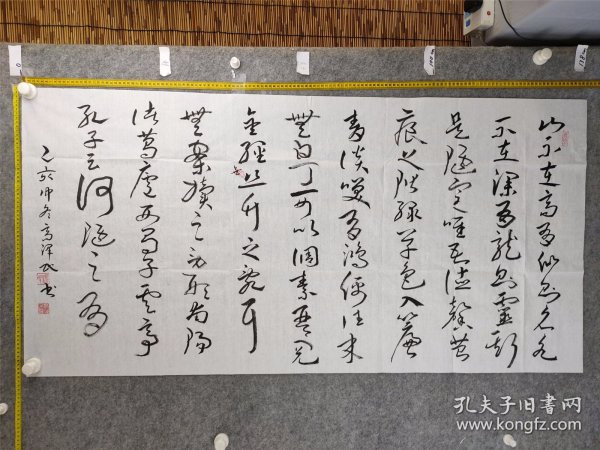 山不在高有仙則名水
不在深有龍則靈斯
是陋室唯吾德馨苔
痕上階緑草色入簾
青談笑有鴻儒往來
無白丁可以調素琴閱
金經絲竹之亂耳
無案牘之勞形南陽
諸葛廬西蜀子雲亭
孔子云何陋之有
己亥仲冬高澤書
孔夫子旧书网
www.kongfz.com